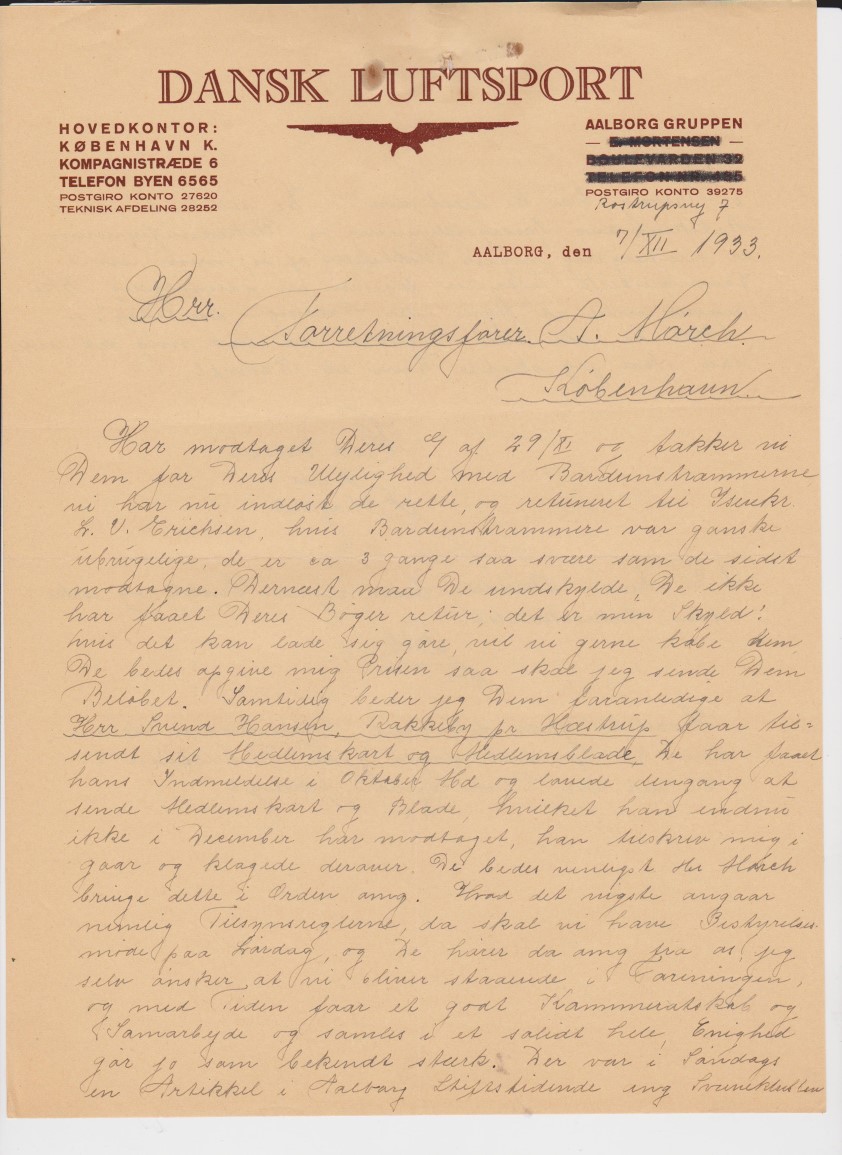 DANSK LUFTSPORT
HOVEDKONTOR:
KØBENHAVN K.
KOMPAGNISTRÆDE 6
TELEFON BYEN 6565
POSTGIRO KONTO 27620
TEKNISK AFDELING 28252
AALBORG GRUPPEN
— E. MORTENSEN —
BOULEVARDEN 32
TELEFON NR. 485
POSTGIRO KONTO 39275
Rostrupsvej 7
AALBORG, den 7/XII 1933.
Hrr.
Forretningsfører A. Mørch.
København.
Har modtaget Deres af 29/XI og takker vi
Dem for Deres Ulylighed med Bardunstrammerne
vi har nu indløst de rette, og retuneret til Isenkr.
L. V. Erichsen, hvis Bardunstrammere var ganske
ubrugelige, de er ca 3 gange saa svære som de sidst
modtagne. Dernæst maa De undskylde, De ikke
har faaet Deres Bøger retur; det er min Skyld!
hvis det kan lade sig gøre, vil vi gerne købe dem,
De bedes opgive mig Prisen saa skal jeg sende Dem
Beløbet. Samtidig beder jeg Dem foranledige at
Herr Svend Hansen, Rakkeby pr Hæstrup faar til=
sendt sit Medlemskort og Medlemsblade, De har faaet
hans Indmeldelse i Oktober Md og lovede dengang at
sende Medlemskort og Blade, hvilket han endnu
ikke i December har modtaget, han tilskrev mig i
gaar og klagede derover. De bedes venligst Hr Mørch
bringe dette i Orden omg. Hvad det vigste angaar
nemlig Tilsynsreglerne, da skal vi have Bestyrelses-
møde paa Lørdag, og De hører da omg fra os, jeg
selv ønsker, at vi bliver staaende i Foreningen,
og med Tiden faar et godt Kammeratskab og
Samarbejde og samles i et solidt hele, Enighed
gør jo som bekendt stærk. Der var i Søndags
en Artikkel i Aalborg Stiftstidende ang Svæveklubben